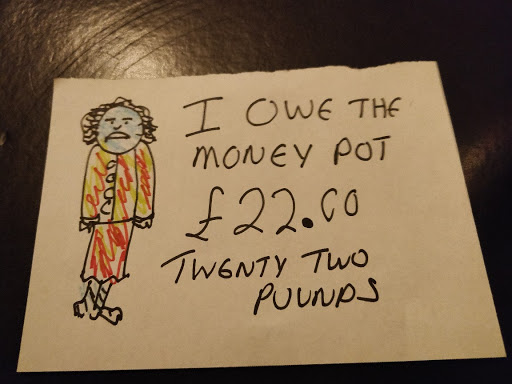 I OWE THE
MONEY POT
£22.00
TWENTY TWO
POUNDS